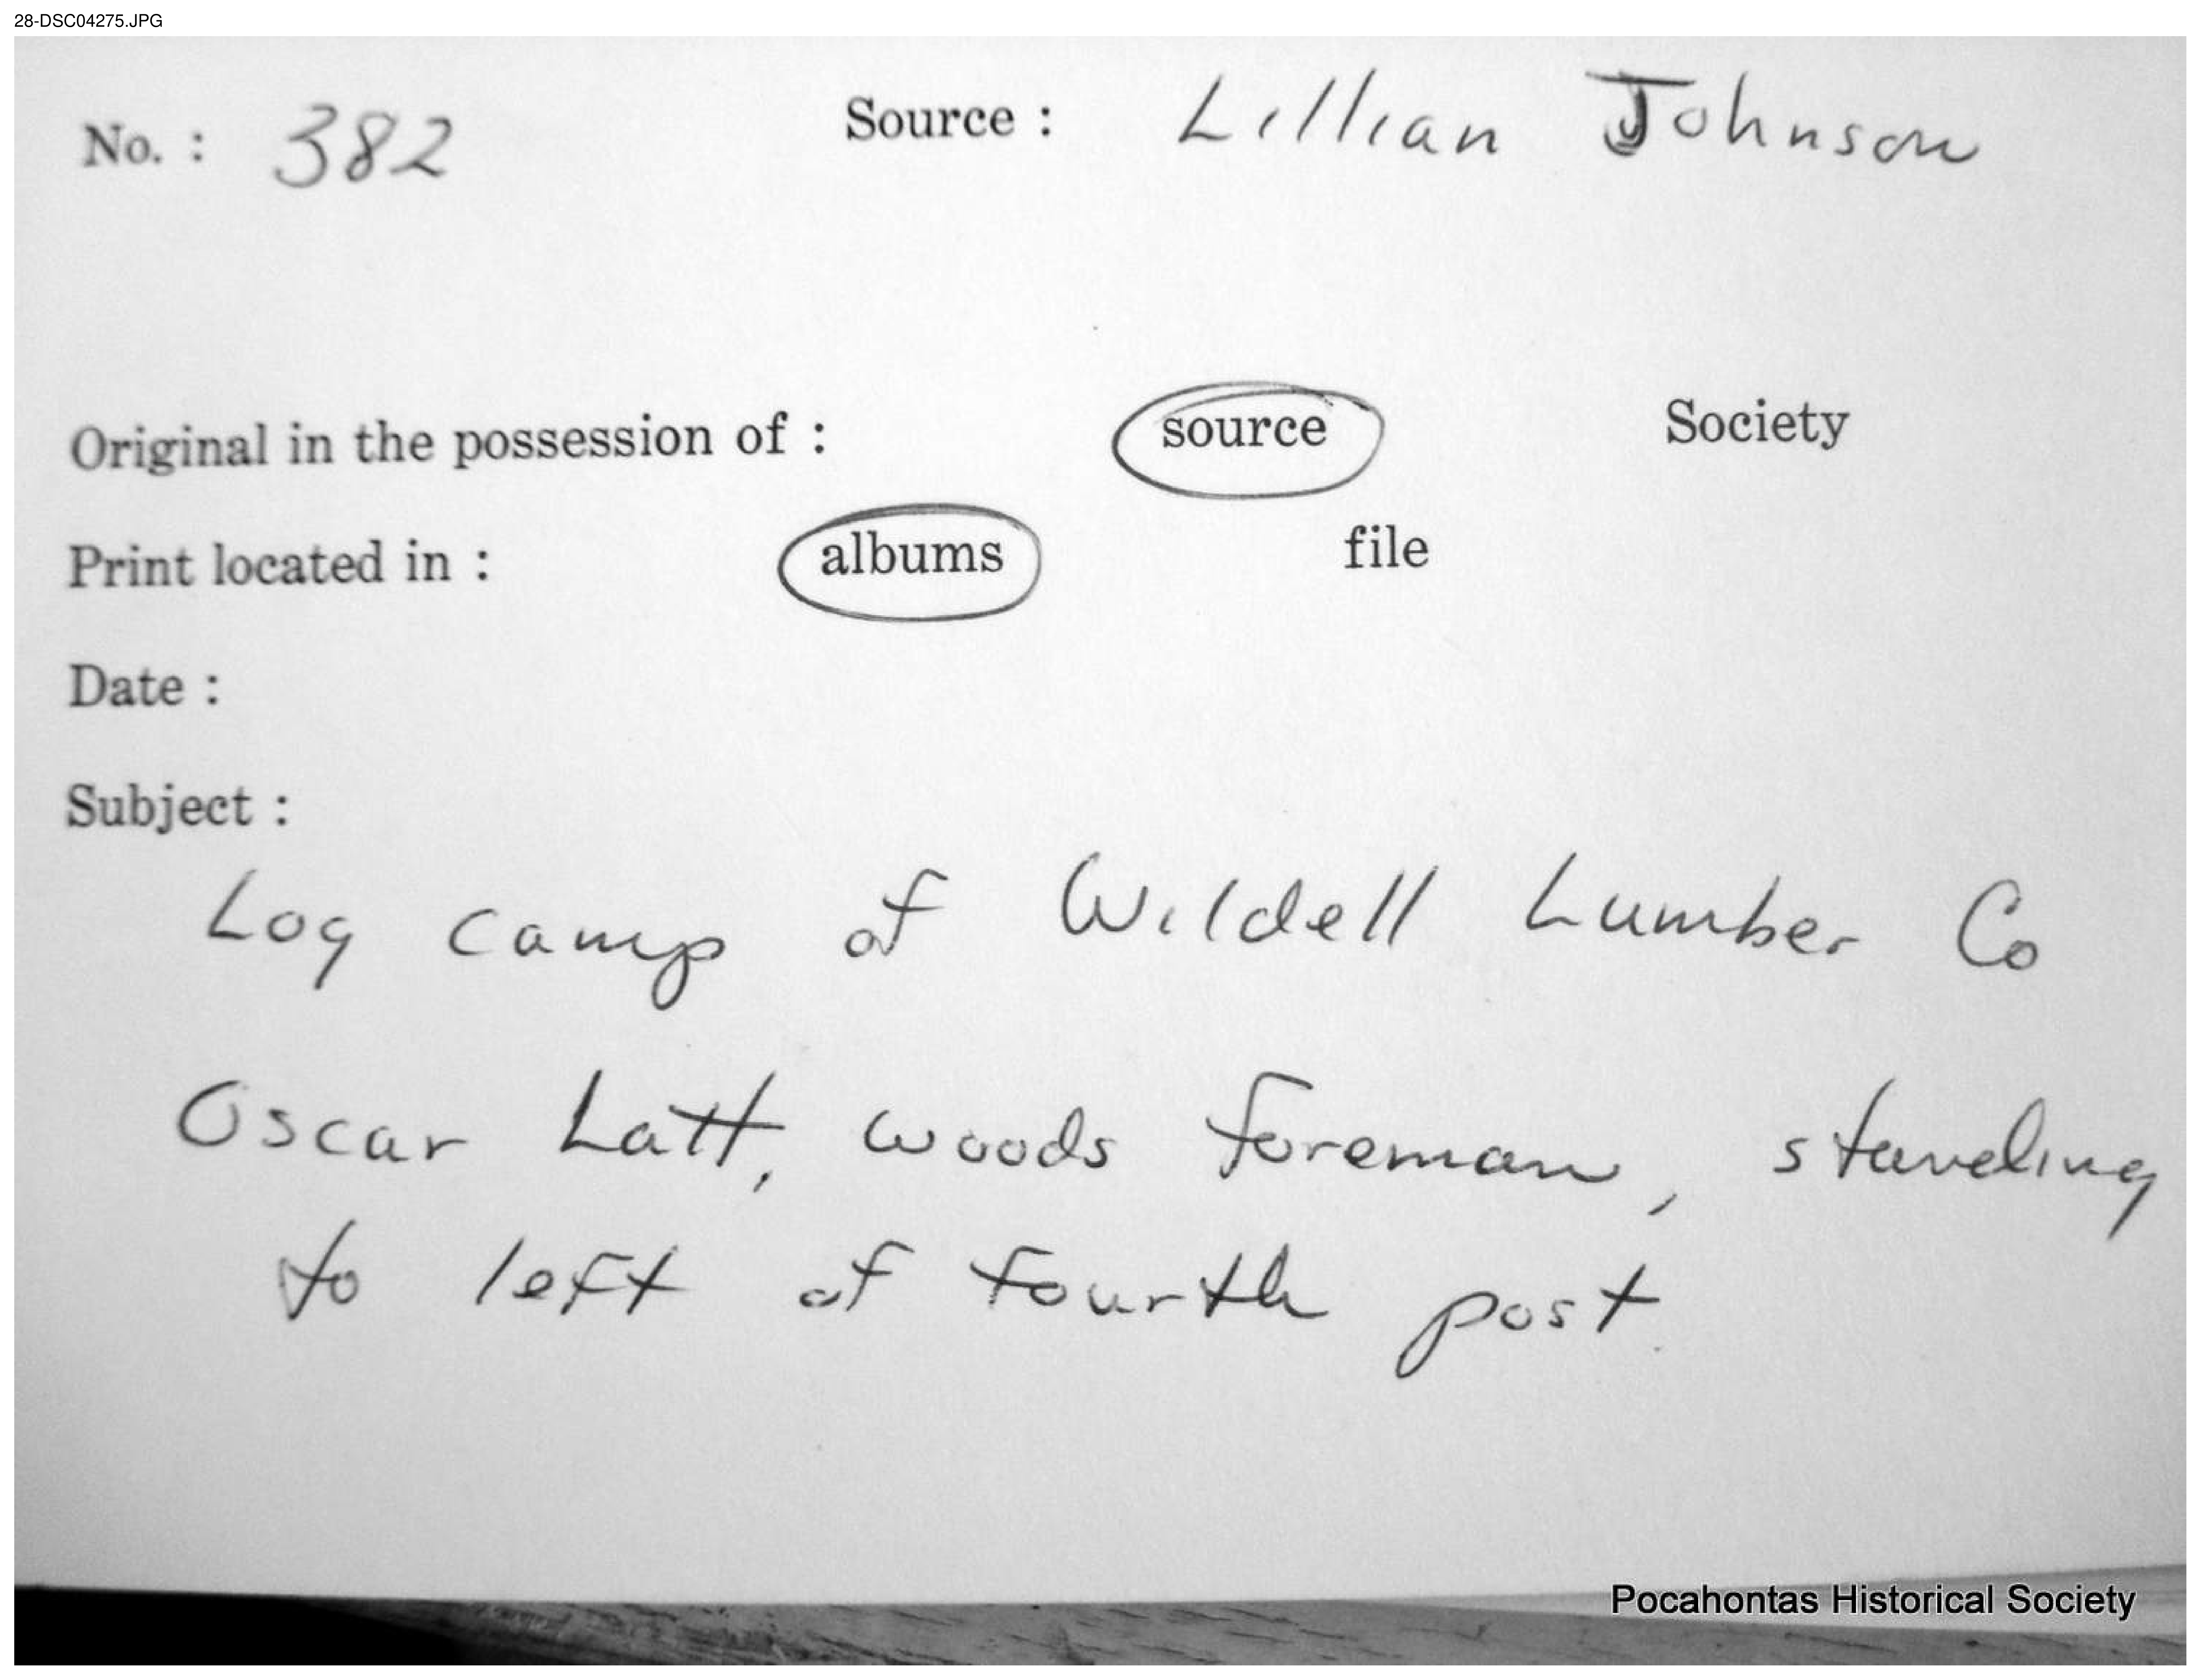 28-DSC04275.JPG
No. : 382 Source : Lillian Johnson
Original in the possession of : source Society
Print located in : albums file
Date :
Subject :
Log camp of Wildell Lumber Co
Oscar Latt, woods foreman, standing
to left of fourth post.
Pocahontas Historical Society